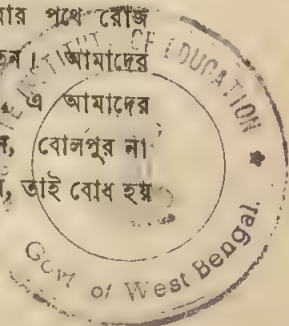 বার পথে রোজ
আমাদের
এ আমাদের
বোলপুর না
তাই বোধ হয়
INSTITUTE OF EDUCATION
Govt of West Bengal.